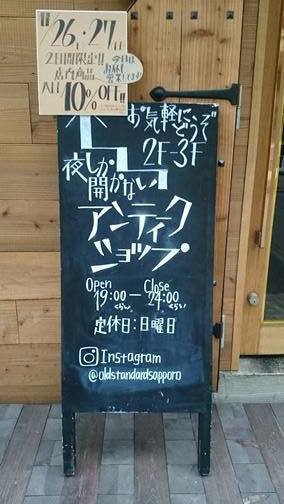 26, 27日
2日間限定!!
店内商品
ALL 10%OFF!!
今日は
昼間も
営業してます
お気軽に
どうぞ
2F-3F
夜しか
開かない
アンティーク
ショップ
Open Close
19:00ー24:00
くらい くらい
定休日:日曜日
Instagram
@oldstandardsapporo